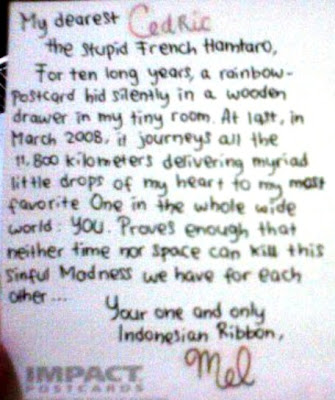 My dearest Cedric
the Stupid French Hamtaro,
For ten long years, a rainbow-
postcard hid silently in a wooden
drawer in my tiny room. At last, in
March 2008, it journeys all the
11,800 kilometers delivering myriad
little drops of my heart to my most
favorite One in the whole wide
world: YOU. Proves enough that
neither time nor space can kill this
Sinful Madness we have for each
other...
Your one and only
Indonesian Ribbon,
Mel
IMPACT
POSTCARDS